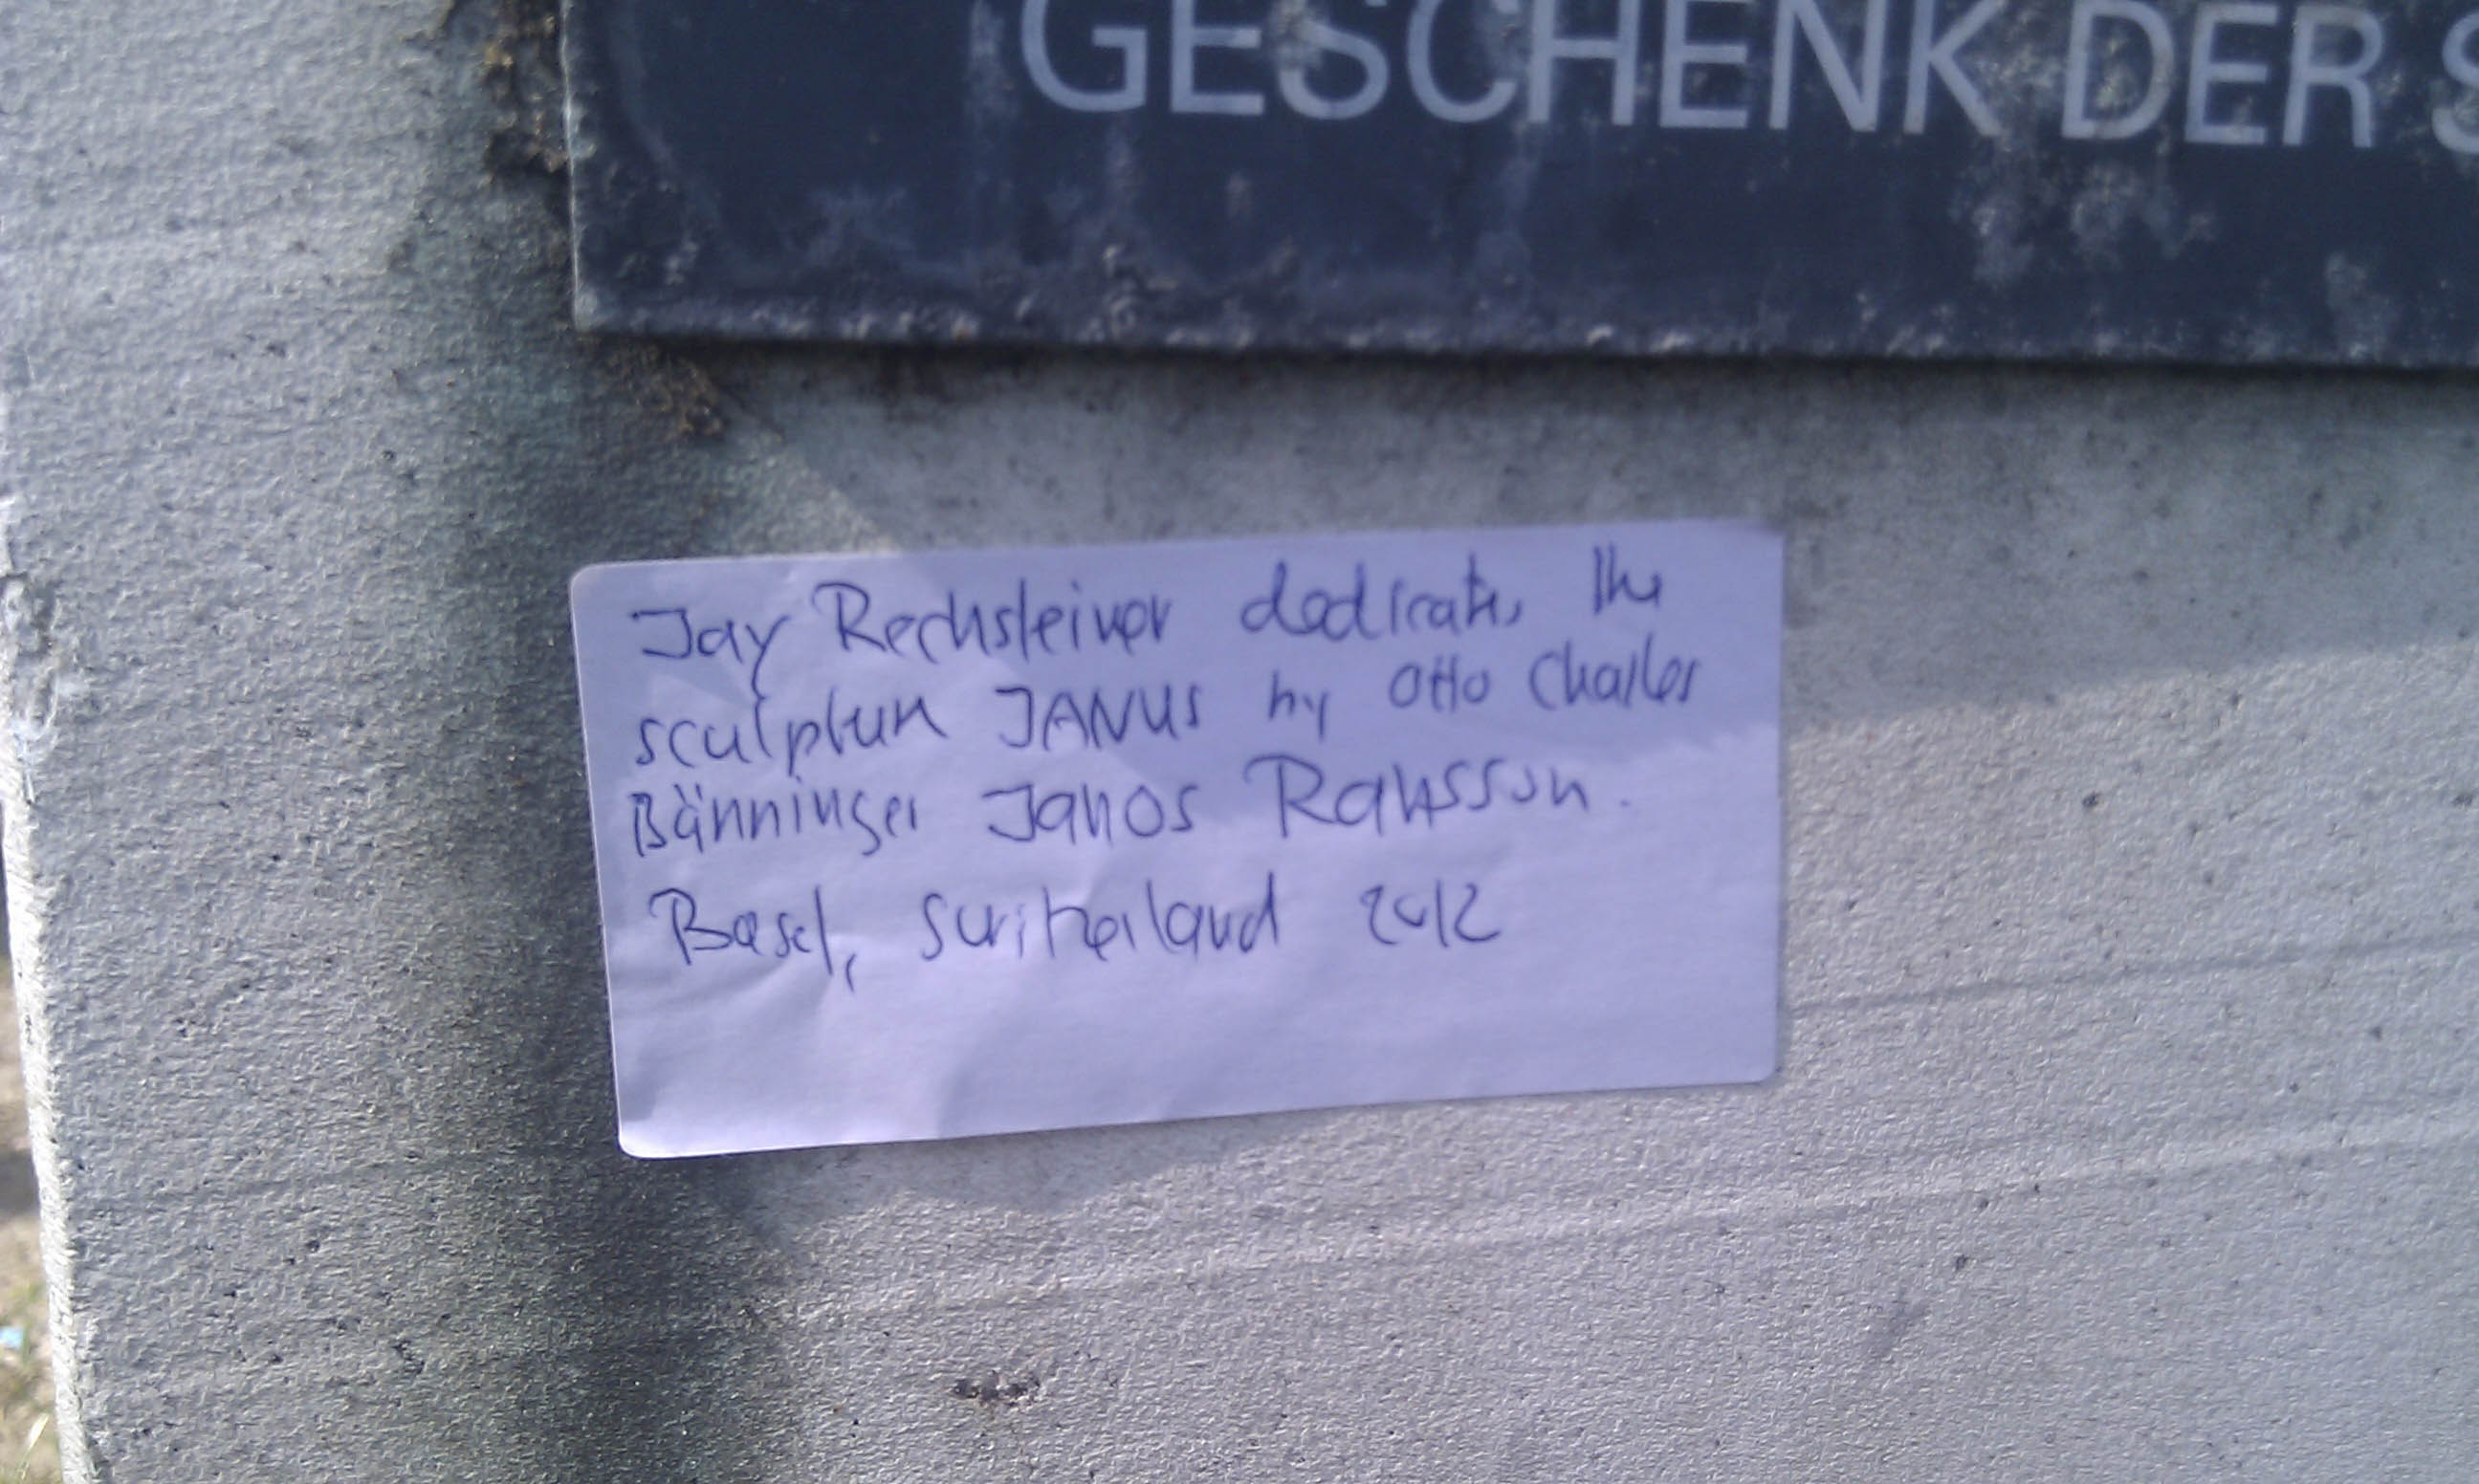 GESCHENK DER S
Jay Rechsteiner dedicates the
sculpture JANUS by Otto Charles
Bänninger Janos Ransson.
Basel, Switzerland 2012